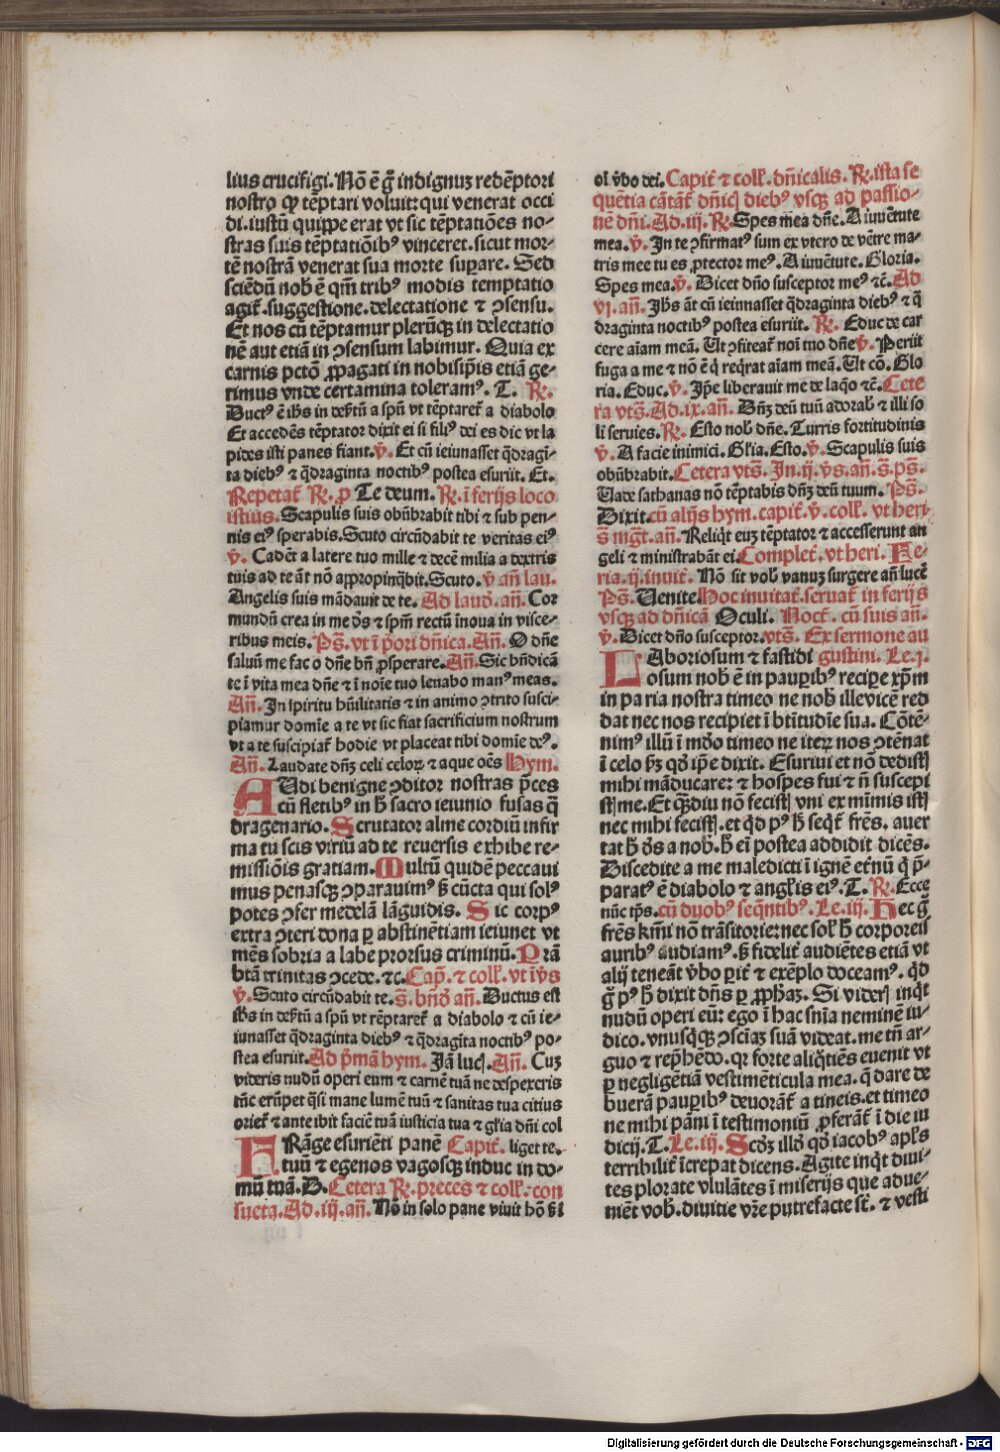 lius crucifigi. Nō ē g̅ indignuꝫ redēptori
nostro ꝙ tēptari voluit: qui venerat occi
di. iustū quippe erat vt sic tēptatiōes no-
stras suis tēptatiōibꝰ vinceret. sicut mor-
tē nostrā venerat sua morte suꝑare. Sed
sciēdū nob̄ ē qm̄ tribꝰ modis temptatio
agit᷑. suggestione. delectatione ⁊ ꝯsensu.
Et nos cū tēptamur plerūqꝫ in delectatio
nē aut etiā in ꝯsensum labimur. Quia ex
carnis pctō ꝓpagati in nobisip̄is etiā ge-
rimus vnde certamina toleramꝰ. T. ℟.
Ductꝰ ē ih̄s in desertū a spū vt tēptaret᷑ a diabolo
Et accedēs tēptator dixit ei si filiꝰ dei es dic vt la
pides isti panes fiant. ℣. Et cū ieiunasset q̄dragi̅-
ta diebꝰ ⁊ q̄draginta noctibꝰ postea esuriit. Et.
Repetat᷑ ℟. ꝓ Te deum. ℟. ī ferijs loco
istius. Scapulis suis obūbrabit tibi ⁊ sub pen-
nis eiꝰ sperabis. Scuto circūdabit te veritas eiꝰ
℣. Cadēt a latere tuo mille ⁊ decē milia a dextris
tuis ad te āt nō appropinq̄bit. Scuto. ℣ an̄ lau.
Angelis suis mādauit de te. Ad laud̄. an̄. Cor
mundū crea in me dꝰs ⁊ spm̄ rectū īnoua in visce-
ribus meis. Ps̄. vt ī p̄ori dn̄ica. An̄. O dn̄e
saluū me fac o dn̄e bn̄ ꝓsperare. An̄. Sic bn̄dicā
te ī vita mea dn̄e ⁊ ī noīe tuo leuabo manꝰ meas.
An̄. In spiritu hūilitatis ⁊ in animo ꝯtrito susci-
piamur domīe a te vt sic fiat sacrificium nostrum
vt a te suscipiat᷑ hodie vt placeat tibi domīe deꝰ.
An̄. Laudate dn̄ꝫ celi celoꝝ ⁊ aque oēs Hym.
AUdi benigne ꝯditor nostras p̄ces
cū fletibꝰ in h̄ sacro ieiunio fusas q̄
dragenario. Scrutator alme cordiū infir
ma tu scis viriū ad te reuersis exhibe re-
missiōis gratiam. Multū quidē peccaui
mus penasqꝫ ꝯparauimꝰ s̄ cūcta qui solꝰ
potes ꝯfer medelā lāguidis. Sic corpꝰ
extra ꝯteri dona ꝑ abstinētiam ieiunet vt
mēs sobria a labe prorsus criminū. Prā
btā trinitas ꝯcede. ⁊c. Cap̄. ⁊ coll̄. vt ī vs̄
℣. Scuto circūdabit te. s̄. bn̄d̄ an̄. Ductus est
ih̄s in desertū a spū vt tēptaret᷑ a diabolo ⁊ cū ie-
iunasset q̄draginta diebꝰ ⁊ q̄dragīta noctibꝰ po-
stea esuriit. Ad p̄mā hym. Jā lucꝭ. An̄. Cuꝫ
videris nudū operi eum ⁊ carnē tuā ne despexeris
tūc erūpet q̄si mane lumē tuū ⁊ sanitas tua citius
oriet᷑ ⁊ ante ibit faciē tuā iusticia tua ⁊ gl̄ia dn̄i col
FRāge esuriēti panē Capit᷑. liget te.
tuū ⁊ egenos vagosqꝫ induc in do-
mū tuā. D. Cetera ℟. preces ⁊ coll̄. con
sueta. Ad. iij. an̄. Nō in solo pane viuit hō s̄ ī
ol v̄bo dei. Capit᷑ ⁊ coll̄. dn̄icalis. ℟. ista se
quētia cātāt᷑ dn̄icꝭ diebꝰ vsqꝫ ad passio-
nē dn̄i. Ad. iij. ℟. Spes mea dn̄e. A iuuētute
mea. ℣. In te ꝯfirmatꝰ sum ex vtero de vētre ma-
tris mee tu es ꝓtector meꝰ. A iuuētute. Gloria.
Spes mea. ℣. Dicet dn̄o susceptor meꝰ ⁊c̄. Ad
vj. an̄. Ih̄s āt cū ieiunasset q̄draginta diebꝰ ⁊ q̄
draginta noctibꝰ postea esuriit. ℟. Educ de car
cere aīam meā. Ut ꝯfiteat᷑ noī tuo dn̄e ℣. Periit
fuga a me ⁊ nō ē q̇ reqrat aīam meā. Ut cō. Glo
ria. Educ. ℣. Ip̄e liberauit me de laq̄o ⁊c̄. Cete
ra vts̄. Ad. ix. an̄. Dn̄ꝫ deū tuū adorab̄ ⁊ illi so
li seruies. ℟. Esto nob̄ dn̄e. Turris fortitudinis
℣. A facie inimici. Gl̄ia. Esto. ℣. Scapulis suis
obūbrabit. Cetera vts̄. In. ij. vs̄. an̄. s̄. ps̄.
Uade sathanas nō tēptabis dn̄ꝫ deū tuum. Ps̄.
Dixit. cū alijs hym. capit᷑. ℣. coll̄. vt heri
s̄ mgt̄. an̄. Reliqt euꝫ tēptator ⁊ accesserunt an
geli ⁊ ministrabāt ei. Complet᷑. vt heri. Fe-
ria. ij. inuit᷑. Nō sit vob̄ vanuꝫ surgere an̄ lucē
Ps̄. Uenite. Hoc inuitat᷑. seruat᷑ in ferijs
vsqꝫ ad dn̄icā Oculi. Noct᷑. cū suis an̄.
℣. Dicet dn̄o susceptor. vts̄. Ex sermone au
LAboriosum ⁊ fastidi gustini. Le. j.
osum nob̄ ē in pauꝑibꝰ recipe xp̄m
in patria nostra timeo ne nob̄ ille vicē red
dat nec nos recipiet ī btītudīe sua. Cōtē-
nimꝰ illū ī mūdo timeo ne iteꝝ nos ꝯtēnat
ī celo s̄ꝫ qd̄ ip̄e dixit. Esuriui et nō dedistꝭ
mihi māducare: ⁊ hospes fui ⁊ n̄ suscepi
stꝭ me. Et q̄diu nō fecistꝭ vni ex mīmis istꝭ
nec mihi fecistꝭ. et qd̄ pꝰ h̄ seqt᷑ frēs. auer
tat h̄ ds̄ a nob̄. h̄ eī postea addidit dicēs.
Discedite a me maledicti ī ignē et̄nū q̇ p̄-
paratꝰ ē diabolo ⁊ angl̄is eiꝰ. T. ℟. Ecce
nūc tp̄s. cū duobꝰ seq̄ntibꝰ. Le. ij. Hec g̅
frēs kmi nō trāsitorie: nec sol̄ h̄ corporeis
auribꝰ audiamꝰ. s̄ fidelit᷑ audiētes etiā vt
alij teneāt v̄bo ꝑit᷑ ⁊ exēplo doceamꝰ. qd̄
g̅ pꝰ h̄ dixit dn̄s ꝑ ꝓph̄aꝫ. Si viderꝭ inqt̄
nudū operi eū: ego ī hac sn̄ia neminē iu-
dico. vnusqꝫ ꝯsciaꝫ suā videat. me tn̄ ar-
guo ⁊ rep̄hēdo. qꝛ forte aliqtiēs euenit vt
ꝑ negligētiā vestimēticula mea. q̄ dare de
buerā pauꝑibꝰ deuorāt᷑ a tineis. et timeo
ne mihi pāni ī testimoniū ꝓferāt᷑ ī die iu
dicij. T. Le. iij. Scdꝫ illd̄ qd̄ iacobꝰ apl̄s
terribilit᷑ īcrepat dicens. Agite inqt̄ diui-
tes plorate vlulātes ī miserijs que adue-
niēt vob̄. diuitie vr̄e putrefacte st̄. ⁊ vesti
Digitalisierung gefördert durch die Deutsche Forschungsgemeinschaft - DFG